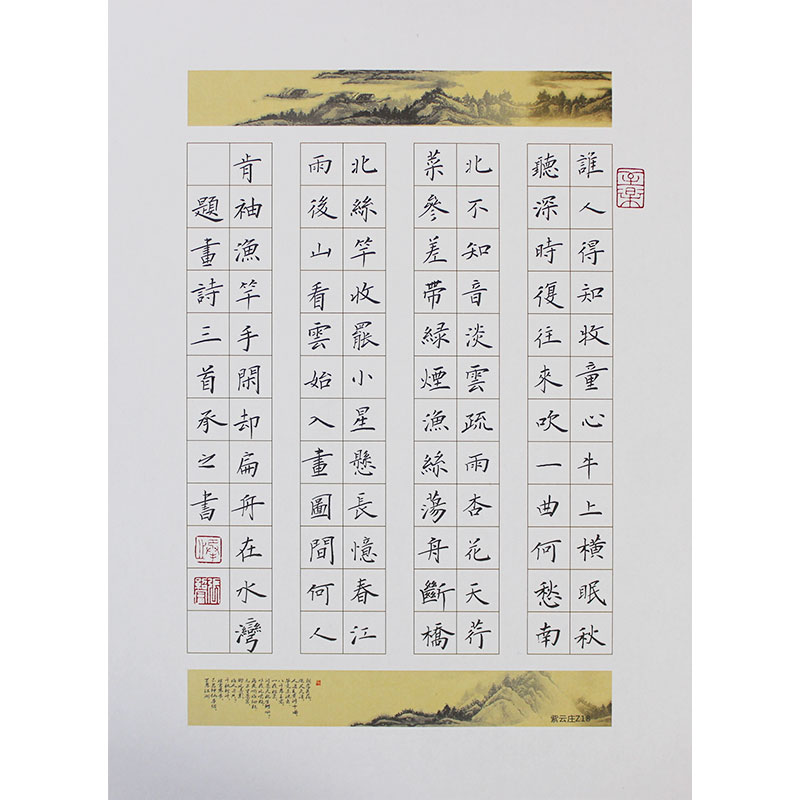 誰人得知牧童心牛上橫眠秋
聽深時復往來吹一曲何愁南
北不知音淡雲疏雨杏花天荇
菜參差帶綠煙漁絲蕩舟斷橋
北絲竿收罷小星懸長憶春江
雨後山看雲始入畫圖間何人
肯袖漁竿手閑却扁舟在水灣
題畫詩三首承之書
紫云庄Z18